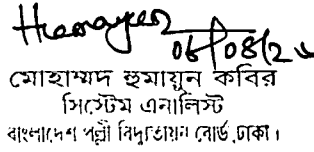 Humayun
06/08/2
মোহাম্মদ হুমায়ুন কবির
সিস্টেম এনালিস্ট
বাংলাদেশ পল্লী বিদ্যুতায়ন বোর্ড, ঢাকা।